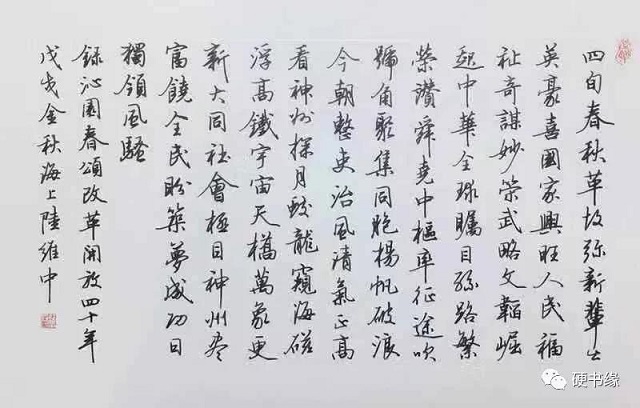 四旬春秋革故弥新輩出
英豪喜國家興旺人民福
祉奇謀妙榮武略文韜崛
起中華全球矚目絲路繁
榮讚舜堯中樞率征途吹
號角聚集同胞楊帆破浪
今朝整吏治風清氣正高
看神州探月蛟龍窺海磁
浮高鐵宇宙天橋萬象更
新大同社會極目神州盡
富饒全民盼築夢成功日
獨領風騷
錄沁園春頌改革開放四十年
戊戌金秋海上陸維中
硬书缘